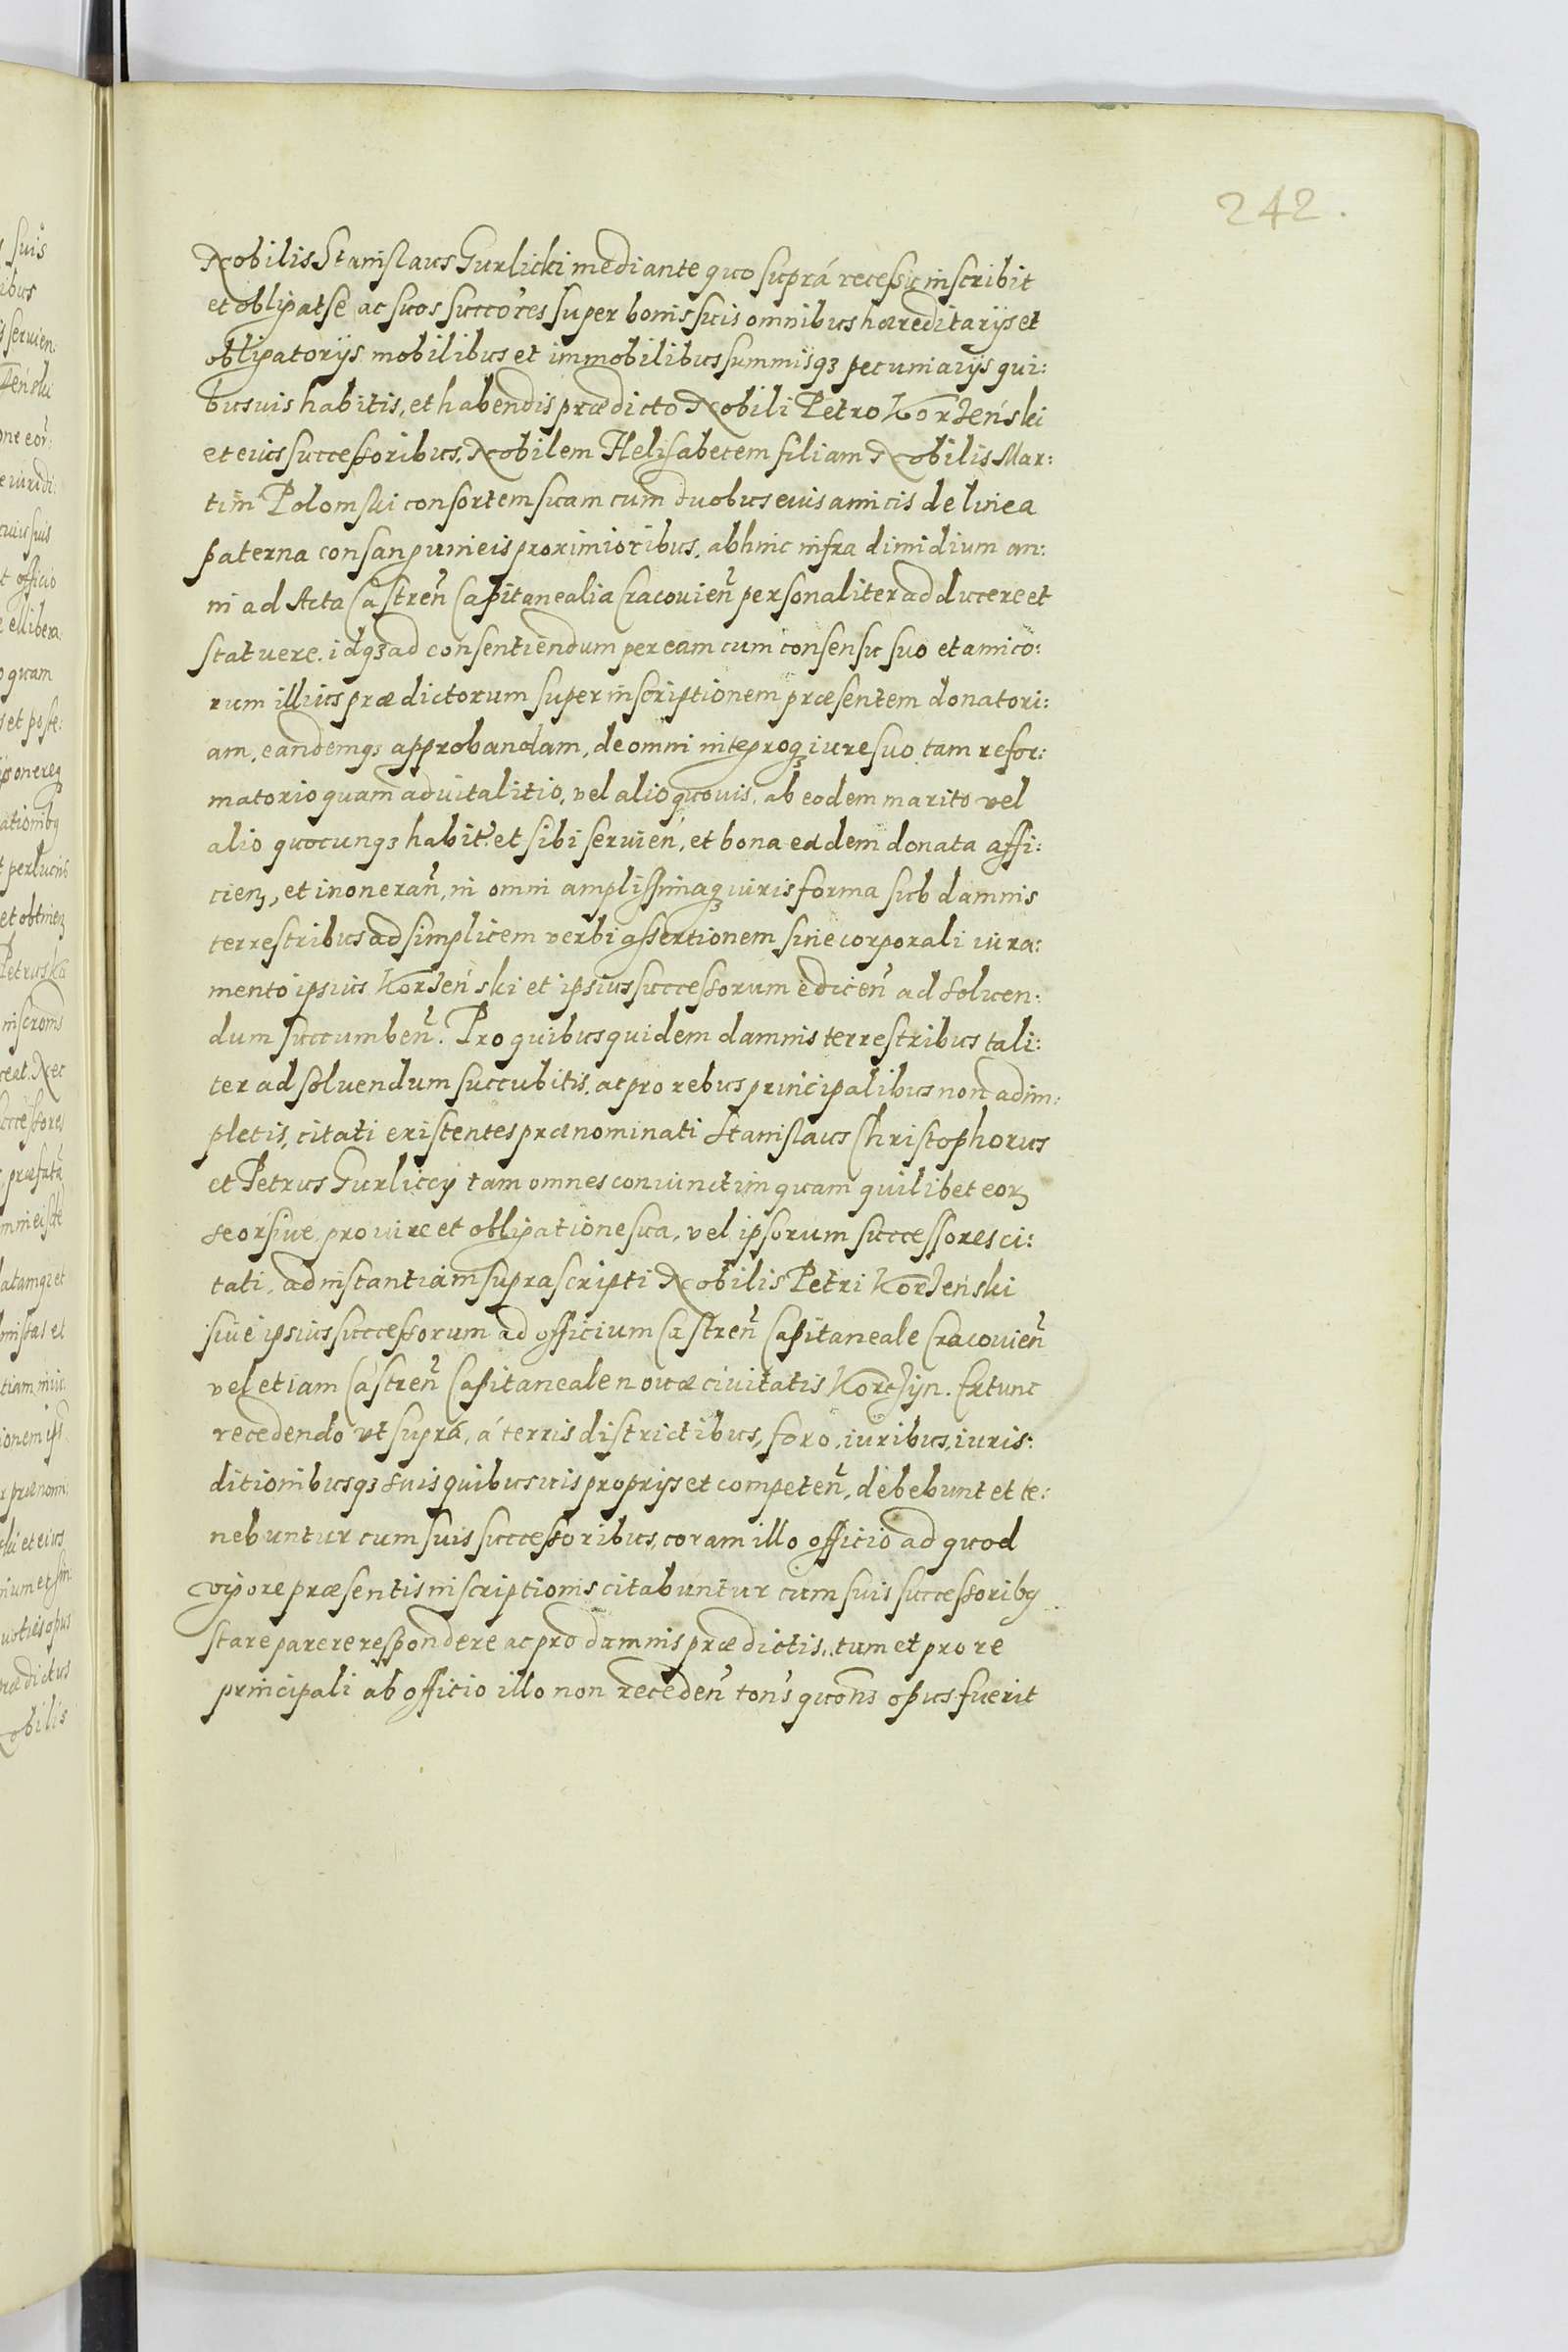 242.
Nobilis Stanislaus Gurlicki mediante quo suprá recessu inscribit
et obligat se ac suos succo͂res super bonis suis omnibus hæreditarijs et
obligatorijs mobilibus et immobilibus summisqꝫ pecuniarijs qui:
busuis habitis, et habendis prædicto Nobili Petro Korzeński
et eius successoribus, Nobilem Helisabetem filiam Nobilis Mar:
tini Polomski consortem suam cum duobus eius amicis de linea
paterna consanguineis proximioribus, abhinc infra dimidium an:
ni ad Acta Castren͂ Capitanealia Cracouien͂ personaliter adducere et
statuere, idqꝫ ad consentiendum per eam cum consensu suo et amico:
rum illius prædictorum super inscriptionem præsentem donatori:
am, eandemqꝫ approbandam, de omni integroqꝫ iure suo, tam refor:
matorio quam aduitalitio, vel alio quouis, ab eodem marito vel
alio quocunqꝫ habit͂ et sibi seruien͂, et bona eadem donata affi:
cienꝫ, et inoneran͂, in omni amplissimaqꝫ iuris forma sub damnis
terrestribus ad simplicem verbi assertionem sine corporali iura:
mento ipsius Korzeński et ipsius successorum edicen͂ ad soluen:
dum succumben͂. Pro quibus quidem damnis terrestribus tali:
ter ad soluendum succubitis, ac pro rebus principalibus non adim:
pletis, citati existentes prænominati Stanislaus Christophorus
et Petrus Gurliccy tam omnes coniunctim quam quilibet eorꝫ
seorsiue pro iure et obligatione sua, vel ipsorum successores ci:
tati, ad instantiam suprascripti Nobilis Petri Korzeński
siue ipsius successorum ad officium Castren͂ Capitaneale Cracouien͂
vel etiam Castren͂ Capitaneale nouæ ciuitatis Korczÿn. Extunc
recedendo vt suprá, á terris districtibus, foro, iuribus, iuris:
ditionibusqꝫ suis quibusuis proprijs et competen͂, debebunt et te:
nebuntur cum suis successoribus, coram illo officio ad quod
vigore præsentis inscriptionis citabuntur cum suis successoribꝯ
stare parere respondere ac pro damnis prædictis, tum et pro re
principali ab officio illo non receden͂ ton͂s quon͂s opus fuerit